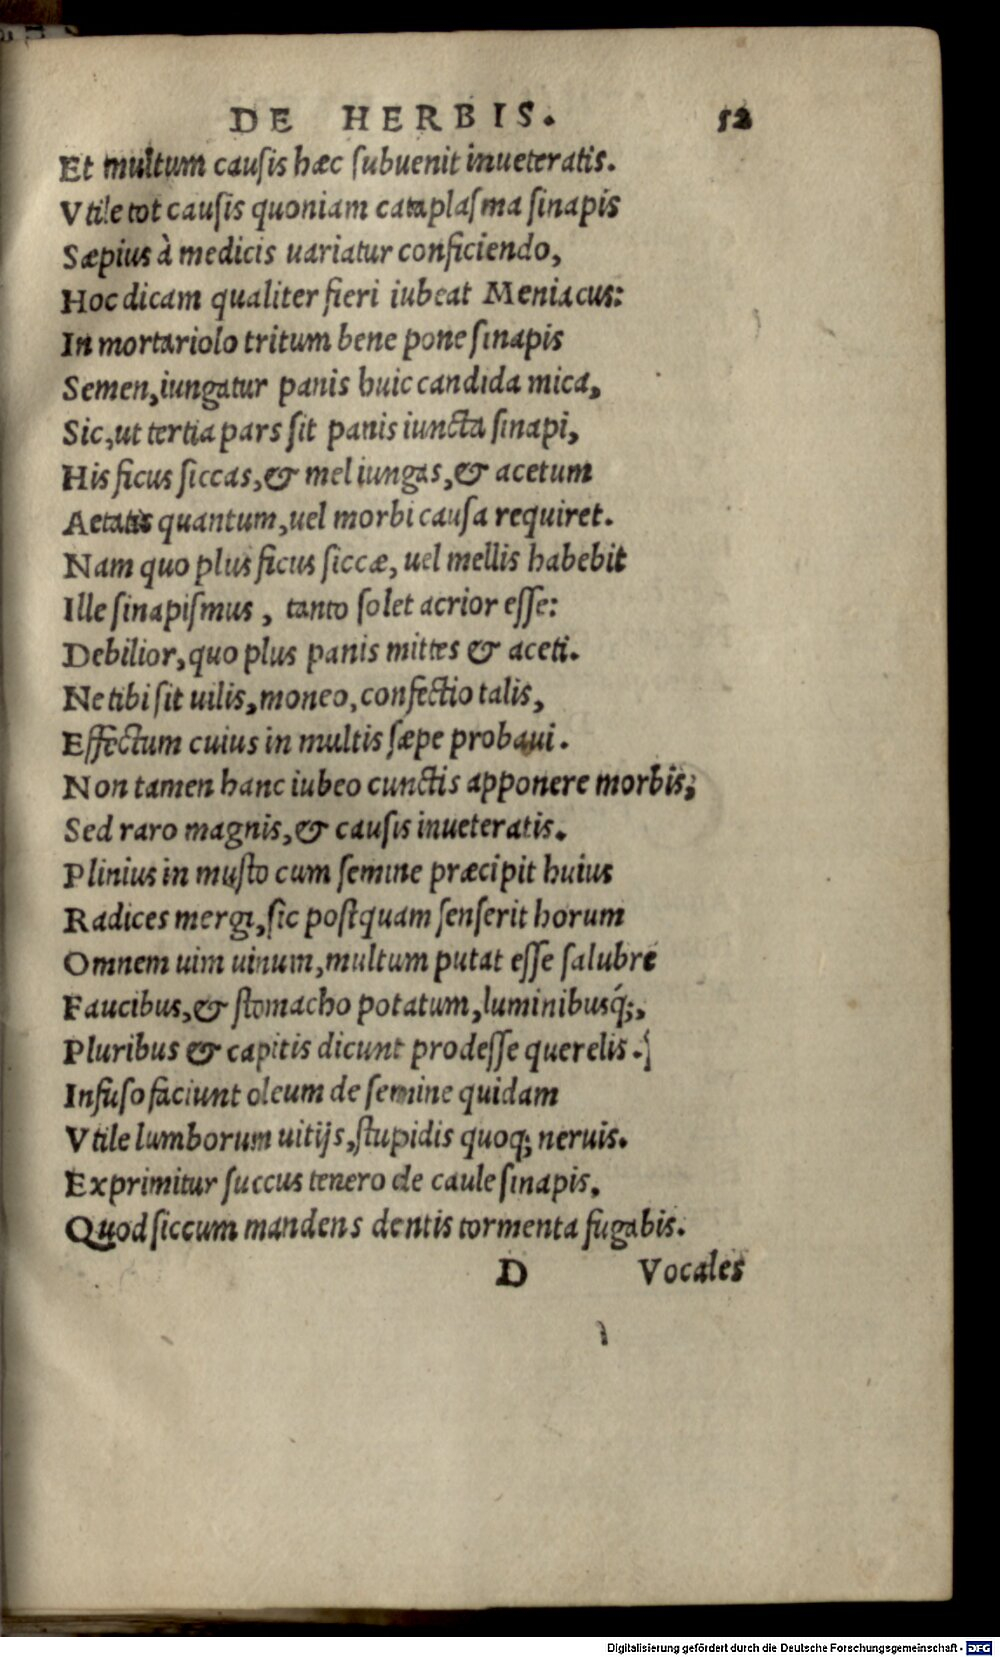 DE HERBIS. 52
Et multum causis hæc subuenit inueteratis.
Vtile tot causis quoniam cataplasma sinapis
Sæpius à medicis uariatur conficiendo,
Hoc dicam qualiter fieri iubeat Meniacus:
In mortariolo tritum bene pone sinapis
Semen, iungatur panis huic candida mica,
Sic, ut tertia pars sit panis iuncta sinapi,
His ficus siccas, & mel iungas, & acetum
Aetatis quantum, uel morbi causa requiret.
Nam quo plus ficus siccæ, uel mellis habebit
Ille sinapismus, tanto solet acrior esse:
Debilior, quo plus panis mittes & aceti.
Ne tibi sit uilis, moneo, confectio talis,
Effectum cuius in multis sæpe probaui.
Non tamen hanc iubeo cunctis apponere morbis;
Sed raro magnis, & causis inueteratis.
Plinius in musto cum semine præcipit huius
Radices mergi, sic postquam senserit horum
Omnem uim uinum, multum putat esse salubre
Faucibus, & stomacho potatum, luminibusq́;,
Pluribus & capitis dicunt prodesse querelis.
Infuso faciunt oleum de semine quidam
Vtile lumborum uitijs, stupidis quoq; neruis.
Exprimitur succus tenero de caule sinapis,
Quod siccum mandens dentis tormenta fugabis.
D Vocales
Digitalisierung gefördert durch die Deutsche Forschungsgemeinschaft - DFG